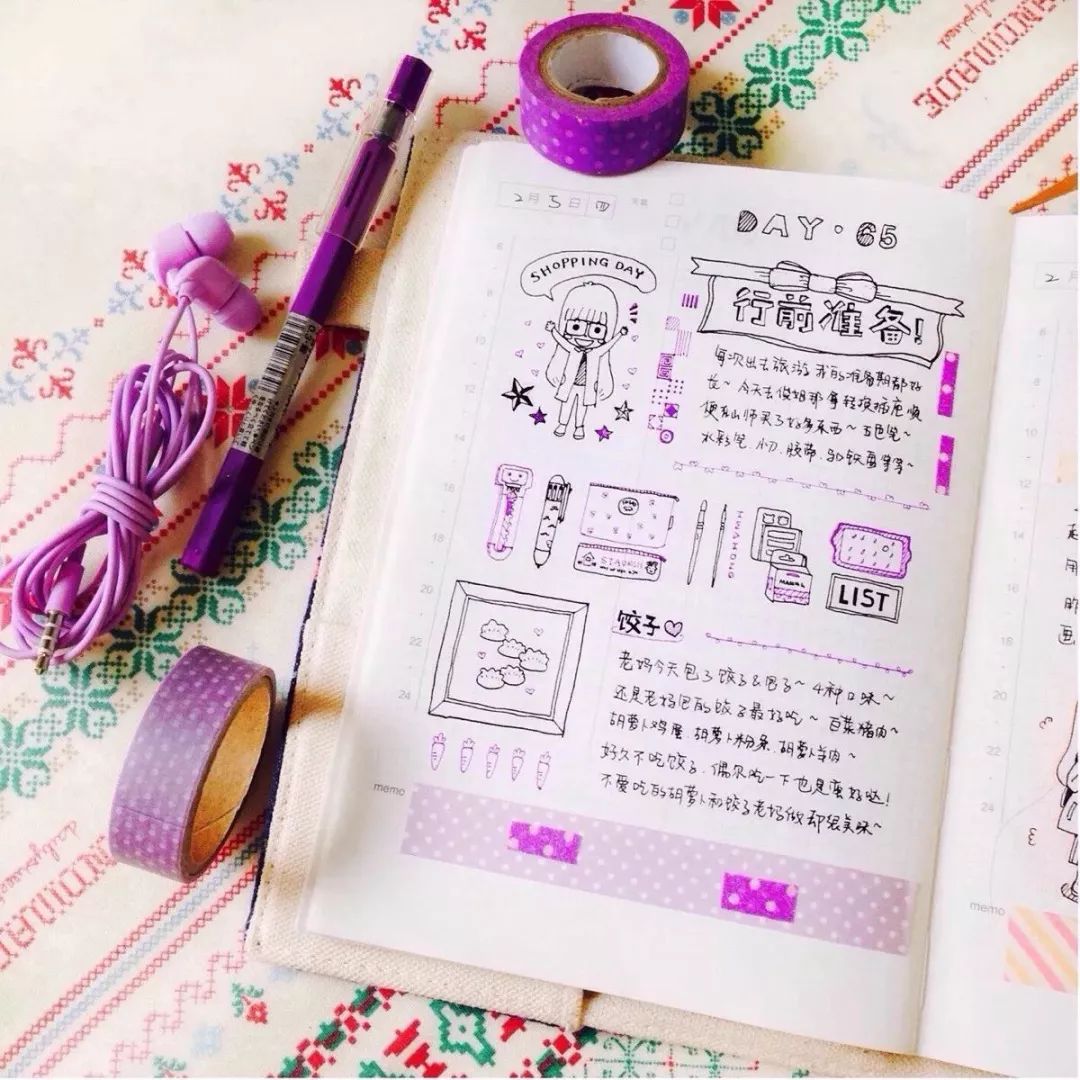 2月5日 四
DAY·65
SHOPPING DAY
行前准备!
每次出去旅游 我的准备期都好
长~ 今天去俊姐那拿转换插座顺
便在山师买了好多东西~ 五色笔~
水彩笔.小刀.胶带.
等等~
LIST
饺子
老妈今天包了饺子&包子~ 4种口味~
还是老妈包的饺子最好吃~ 白菜猪肉~
胡萝卜鸡蛋.胡萝卜粉条.胡萝卜羊肉~
好久不吃饺子.偶尔吃一下也是蛮好哒!
不爱吃的胡萝卜和饺子老妈做却很美味~
6
8
10
12
14
16
18
20
22
24
memo
2月
memo